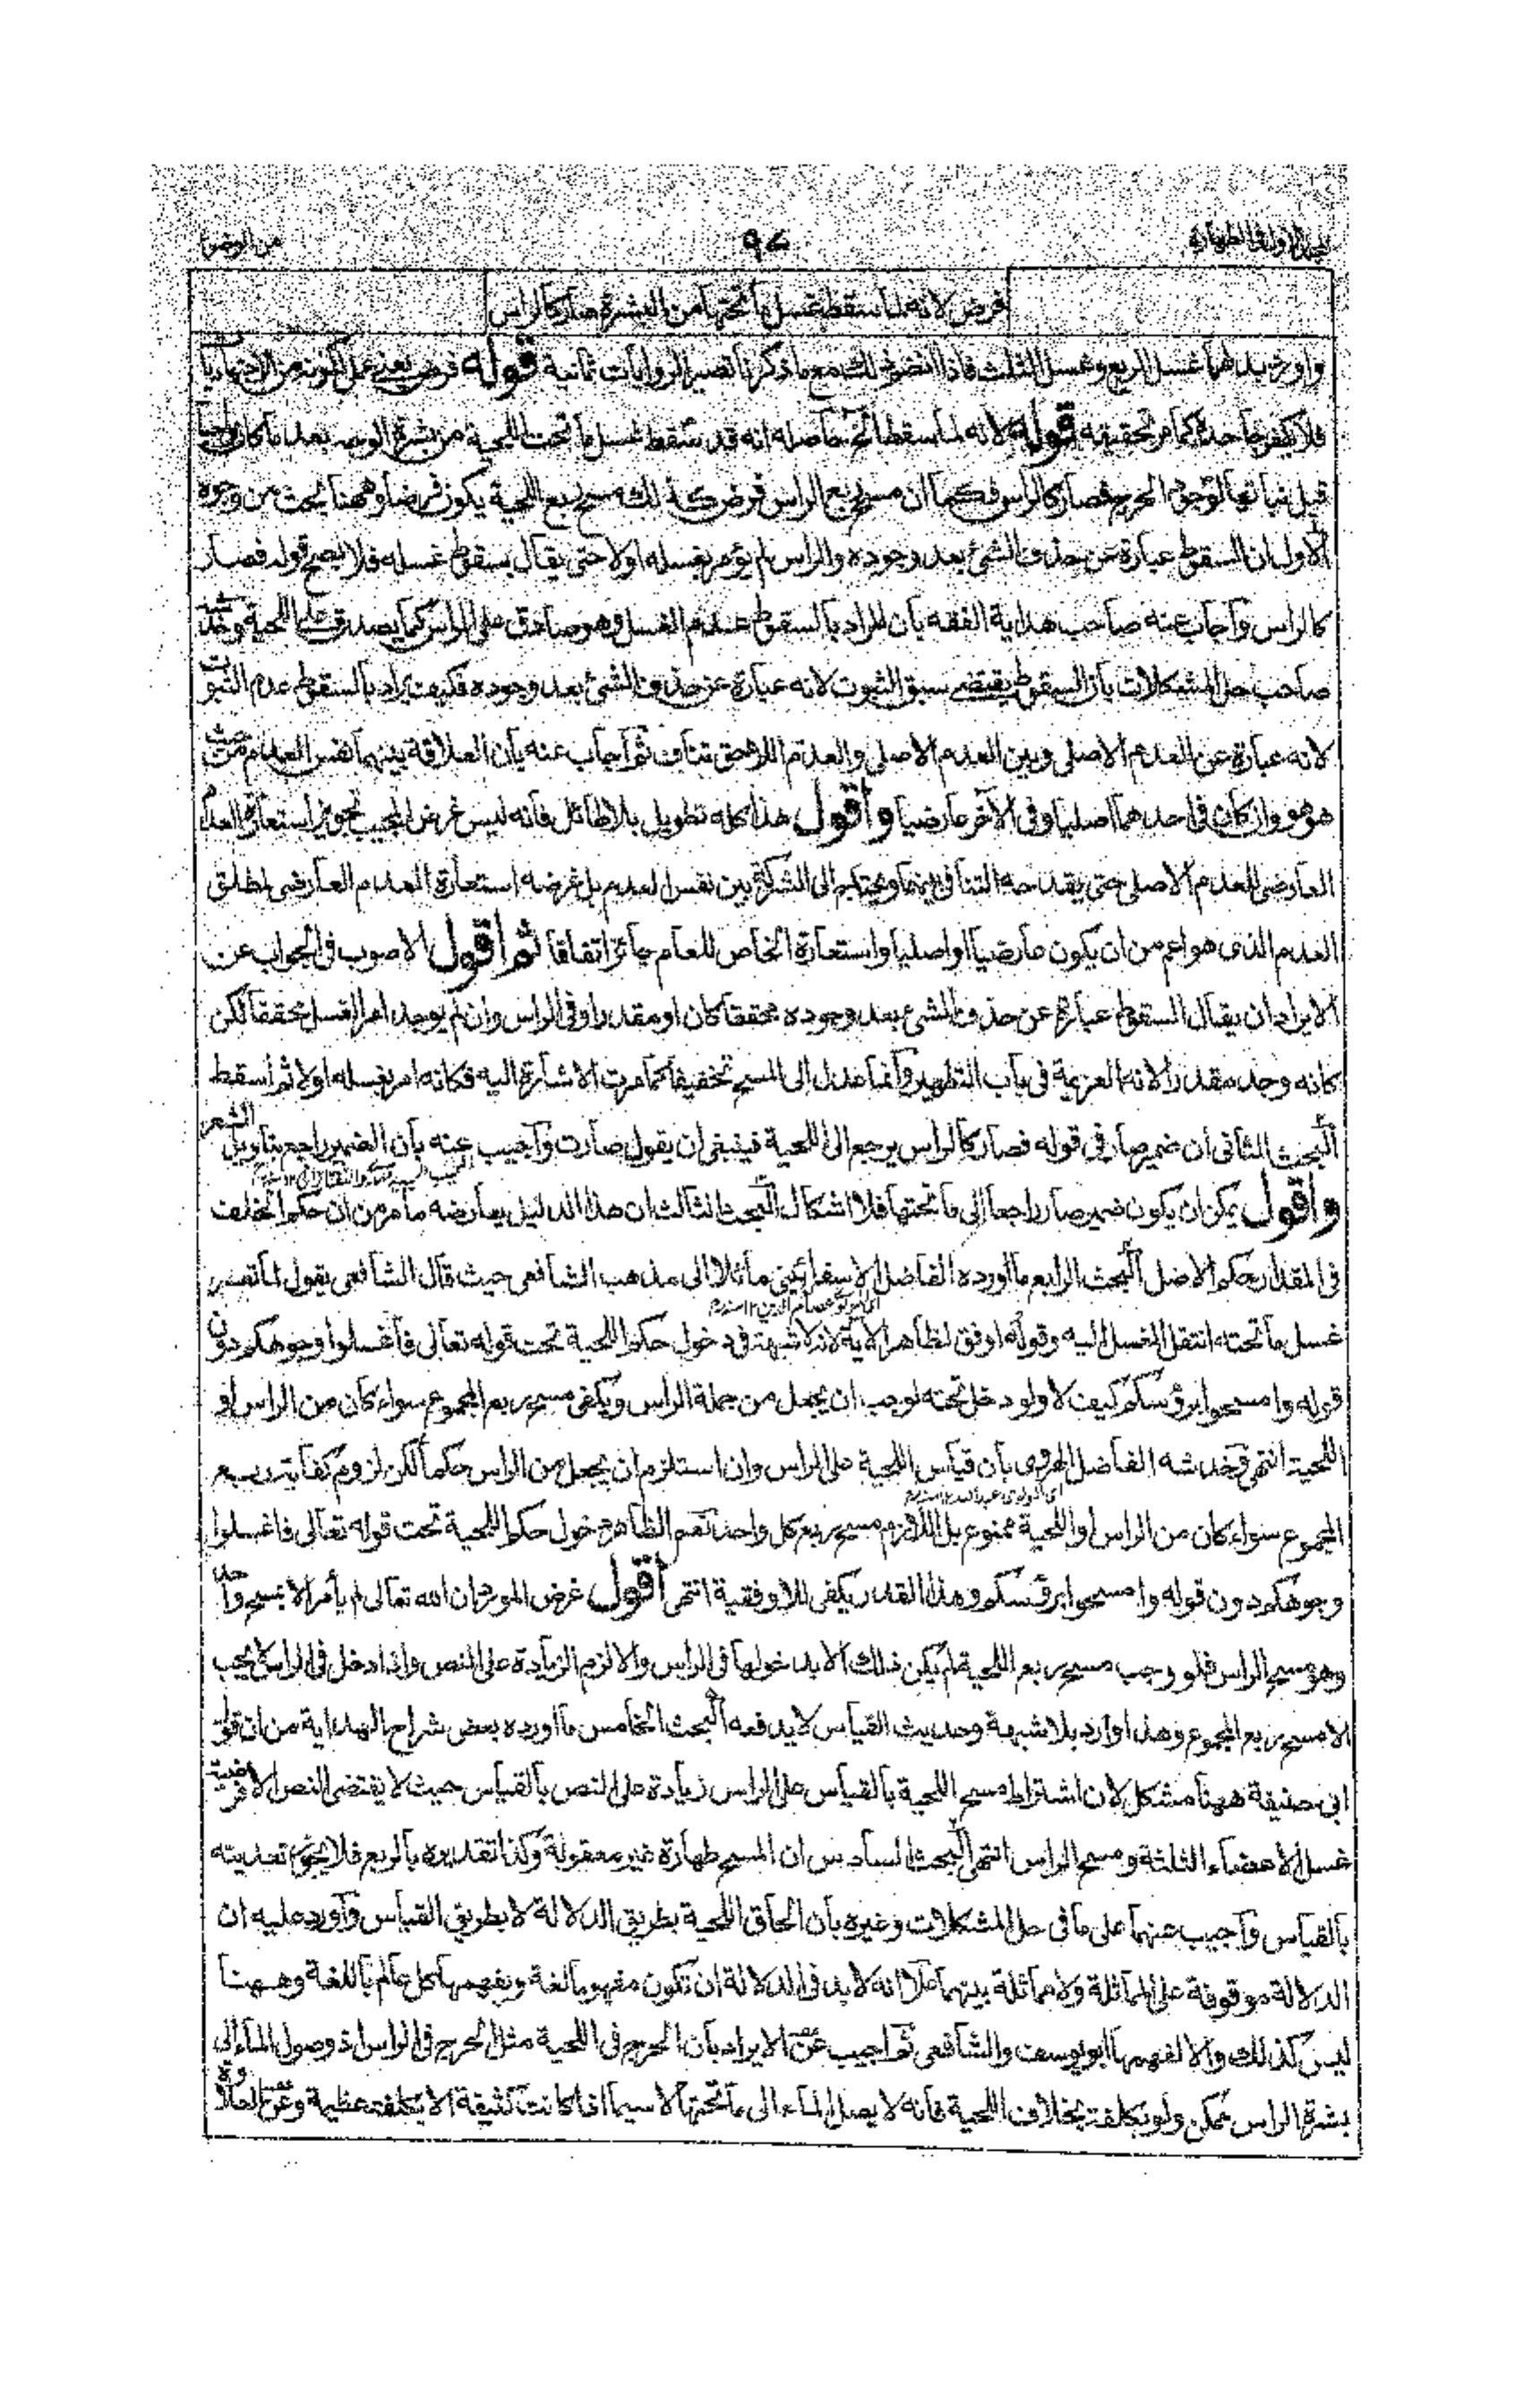 الجلد الاول فی الطهارة ٩٤ من الوضوء
فرض لانه لما سقط غسل ما تحتها من البشرة صار کالراس
واورد بدلهما غسل الربع وغسل الثلث فاذا انضم ذلك مع ما ذکرنا تصیر الروایات ثمانیة قوله فرض یعنی عملی لکونه من الاجتهادیات
فلا یکفر جاحده کما مر تحقیقه قوله لانه لما سقط الخ حاصله انه قد سقط غسل ما تحت اللحیة من بشرة الوجه بعد ما کان واجبا
قبل نباتها لوجود الحرج فصار کالراس فکما ان مسح ربع الراس فرض کذلك مسح ربع اللحیة یکون فرضا وههنا بحث من وجوه
الاول ان السقوط عبارة عن حذف الشئ بعد وجوده والراس لم یؤمر بغسله اولا حتی یقال بسقوط غسله فلا یصح قوله فصار
کالراس واجاب عنه صاحب هدایة الفقه بان المراد بالسقوط عدم الغسل وهو صادق علی الراس کما یصدق علی اللحیة وخدشه
صاحب حل المشکلات بان السقوط یقتضی سبق الثبوت لانه عبارة عن حذف الشئ بعد وجوده فکیف یراد بالسقوط عدم الثبوت
لانه عبارة عن العدم الاصلی وبین العدم الاصلی والعدم اللاحق تناف ثم اجاب عنه بان العلاقة بینهما نفس العدم من حیث
هو هو وان کان فی احدهما اصلیا وفی الآخر عارضیا واقول هذا کله تطویل بلا طائل فانه لیس غرض المجیب تجویز استعارة العدم
العارضی للعدم الاصلی حتی یقدحه التنافی بینهما ویحتاج الی الشرکة بین نفس العدم بل غرضه استعارة العدم العارضی لمطلق
العدم الذی هو اعم من ان یکون عارضیا او اصلیا واستعارة الخاص للعام جائز اتفاقا ثم اقول الاصوب فی الجواب عن
الایراد ان یقال السقوط عبارة عن حذف الشئ بعد وجوده محققا کان او مقدرا وفی الراس وان لم یوجد امر الغسل محققا لکن
کانه وجد مقدرا لانه العزیمة فی باب التطهیر وانما عدل الی المسح تخفیفا کما مرت الاشارة الیه فکانه امر بغسله اولا ثم اسقط
البحث الثانی ان ضمیر صار فی قوله فصار کالراس یرجع الی اللحیة فینبغی ان یقول صارت واجیب عنه بان الضمیر راجع بتاویل الشعر
واقول یمکن ان یکون ضمیر صار راجعا الی ما تحتها فلا اشکال البحث الثالث ان هذا الدلیل یعارضه ما مر من ان حکم الخلف
فی المقدار حکم الاصل البحث الرابع ما اورده الفاضل الاسفرائینی مائلا الی مذهب الشافعی حیث قال الشافعی یقول لما تعسر
ای المولوی عصام الدین ١٢ منه
غسل ما تحته انتقل الغسل الیه وقوله اوفق لظاهر الآیة لانه لا شبهة فی دخول حکم اللحیة تحت قوله تعالی فاغسلوا وجوهکم دون
قوله وامسحوا برؤسکم کیف لا ولو دخل تحته لوجب ان یجعل من جملة الراس ویکفی مسح ربع المجموع سواء کان من الراس او
اللحیة انتهی وخدشه الفاضل الهروی بان قیاس اللحیة علی الراس وان استلزم ان یجعل من الراس حکما لکن لزوم کفایة ربع
المجموع سواء کان من الراس او اللحیة ممنوع بل اللازم مسح ربع کل واحد نعم الظاهر دخول حکم اللحیة تحت قوله تعالی فاغسلوا
وجوهکم دون قوله وامسحوا برؤسکم وهذا القدر یکفی للاوفقیة انتهی اقول غرض المورد ان الله تعالی لم یأمر الا بمسح واحد
وهو مسح الراس فلو وجب مسح ربع اللحیة لم یکن ذلك الا بدخولها فی الراس والا لزم الزیادة علی النص واذا دخل فی الراس لا یجب
الا مسح ربع المجموع وهذا وارد بلا شبهة وحدیث القیاس لا یدفعه البحث الخامس ما اورده بعض شراح الهدایة من ان قول
ابی حنیفة ههنا مشکل لان اشتراط مسح اللحیة بالقیاس علی الراس زیادة علی النص بالقیاس حیث لا یقتضی النص الا فرضیة
غسل الاعضاء الثلثة ومسح الراس انتهی البحث السادس ان المسح طهارة غیر معقولة وکذا تقدیره بالربع فلا یجوز تعدیته
بالقیاس واجیب عنهما علی ما فی حل المشکلات وغیره بان الحاق اللحیة بطریق الدلالة لا بطریق القیاس واورد علیه ان
الدلالة موقوفة علی المماثلة ولا مماثلة بینهما علی انه لا بد فی الدلالة ان تکون مفهوما لغة ویفهمها کل عالم باللغة وههنا
لیس کذلك والا لفهمها ابو یوسف والشافعی ثم اجیب عن الایراد بان الحرج فی اللحیة مثل الحرج فی الراس اذ وصول الماء الی
بشرة الراس ممکن ولو بکلفة بخلاف اللحیة فانه لا یصل الماء الی ما تحتها لا سیما اذا کانت کثیفة الا بکلفة عظیمة وعن العلاوة